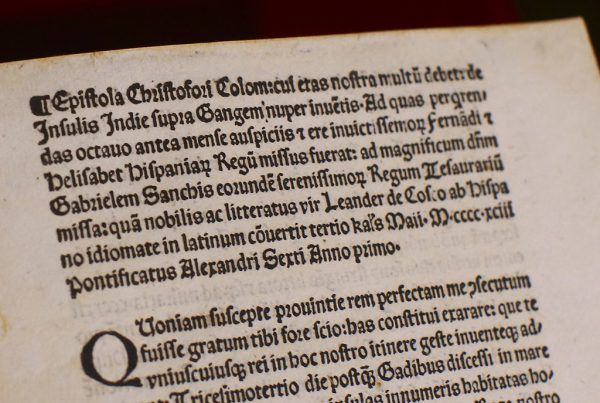 ¶Epistola Christofori Colom: cui etas nostra multū debet: de
Insulis Indie supra Gangem nuper inuētis. Ad quas perqren-
das octauo antea mense auspiciis ⁊ ere inuictissemoꝝ Fernādi ⁊
Helisabet Hispaniaꝝ Regū missus fuerat: ad magnificum dn̄m
Gabrielem Sanchis eorundē serenissimoꝝ Regum Tesaurariū
missa: quā nobilis ac litteratus vir Leander de Cosco ab Hispa
no idiomate in latinum cōuertit tertio kal's Maii. M.cccc.xciii
Pontificatus Alexandri Sexti Anno primo.
Quoniam suscepte prouintie rem perfectam me ꝯsecutum
fuisse gratum tibi fore scio: has constitui exarare: que te
vniuscuiusqꝫ rei in hoc nostro itinere geste inuenteqꝫ ad-
Tricesimotertio die postqꝫ Gadibus discessi in mare
insulas innumeris habitatas ho-
nostro